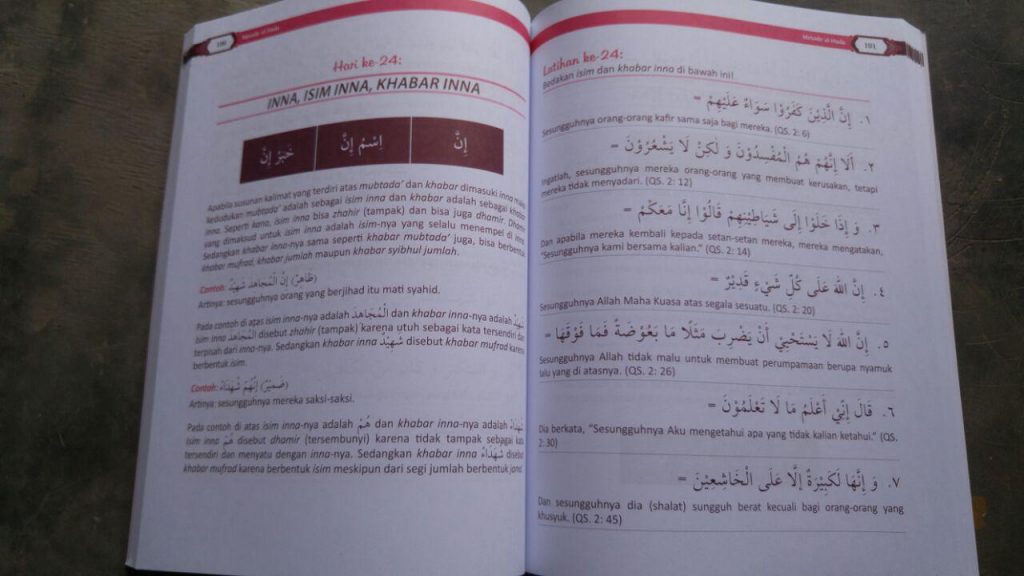 100
Metode al-Huda
Hari ke-24:
INNA, ISIM INNA, KHABAR INNA
إِنَّ
اِسْمُ إِنَّ
خَبَرُ إِنَّ
Apabila susunan kalimat yang terdiri atas mubtada' dan khabar dimasuki inna
kedudukan mubtada' adalah sebagai isim inna dan khabar adalah sebagai khabar
inna. Seperti kana, isim inna bisa zhahir (tampak) dan bisa juga dhamir. Dhamir
yang dimaksud untuk isim inna adalah isim-nya yang selalu menempel di inna.
Sedangkan khabar inna-nya sama seperti khabar mubtada' juga, bisa berbentuk
khabar mufrad, khabar jumlah maupun khabar syibhul jumlah.
Contoh: (ظَاهِرٌ) إِنَّ الْمُجَاهِدَ شَهِيْدٌ
Artinya: sesungguhnya orang yang berjihad itu mati syahid.
Pada contoh di atas isim inna-nya adalah الْمُجَاهِدَ dan khabar inna-nya adalah شَهِيْدٌ
Isim inna الْمُجَاهِدَ disebut zhahir (tampak) karena utuh sebagai kata tersendiri dan
terpisah dari inna-nya. Sedangkan khabar inna شَهِيْدٌ disebut khabar mufrad karena
berbentuk isim.
Contoh: (ضَمِيْرٌ) إِنَّهُمْ شُهَدَاءُ
Artinya: sesungguhnya mereka saksi-saksi.
Pada contoh di atas isim inna-nya adalah هُمْ dan khabar inna-nya adalah شُهَدَاءُ
Isim inna هُمْ disebut dhamir (tersembunyi) karena tidak tampak sebagai kata
tersendiri dan menyatu dengan inna-nya. Sedangkan khabar inna شُهَدَاءُ disebut
khabar mufrad karena berbentuk isim meskipun dari segi jumlah berbentuk jama'
Metode al-Huda
101
Latihan ke-24:
Bedakan isim dan khabar inna di bawah ini!
١. إِنَّ الَّذِيْنَ كَفَرُوْا سَوَاءٌ عَلَيْهِمْ =
Sesungguhnya orang-orang kafir sama saja bagi mereka. (QS. 2: 6)
٢. أَلَا إِنَّهُمْ هُمُ الْمُفْسِدُوْنَ وَ لَكِنْ لَا يَشْعُرُوْنَ =
Ingatlah, sesungguhnya mereka orang-orang yang membuat kerusakan, tetapi
mereka tidak menyadari. (QS. 2: 12)
٣. وَ إِذَا خَلَوْا إِلَى شَيَاطِيْنِهِمْ قَالُوْا إِنَّا مَعَكُمْ =
Dan apabila mereka kembali kepada setan-setan mereka, mereka mengatakan,
"Sesungguhnya kami bersama kalian." (QS. 2: 14)
٤. إِنَّ اللهَ عَلَى كُلِّ شَيْءٍ قَدِيْرٌ =
Sesungguhnya Allah Maha Kuasa atas segala sesuatu. (QS. 2: 20)
٥. إِنَّ اللهَ لَا يَسْتَحْيِيْ أَنْ يَضْرِبَ مَثَلًا مَا بَعُوْضَةً فَمَا فَوْقَهَا =
Sesungguhnya Allah tidak malu untuk membuat perumpamaan berupa nyamuk
lalu yang di atasnya. (QS. 2: 26)
٦. قَالَ إِنِّيْ أَعْلَمُ مَا لَا تَعْلَمُوْنَ =
Dia berkata, "Sesungguhnya Aku mengetahui apa yang tidak kalian ketahui." (QS.
2: 30)
٧. وَ إِنَّهَا لَكَبِيْرَةٌ إِلَّا عَلَى الْخَاشِعِيْنَ =
Dan sesungguhnya dia (shalat) sungguh berat kecuali bagi orang-orang yang
khusyuk. (QS. 2: 45)